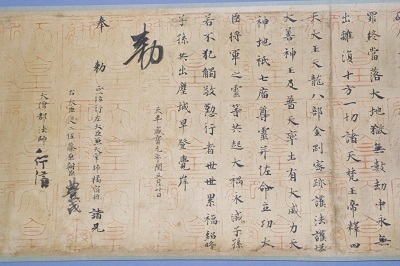 罪終當落大地獄無數劫中永無
出離復十方一切諸天梵王帝釋四
天大王天龍八部金剛密跡護法護塔
大善神王及普天率土有大威力天
神地祇七廟尊靈并佐命立功大
臣將軍之靈等共起大禍永滅子孫
若不犯觸敬勤行者世世累福紹隆
子孫共出塵域早登覺岸
天平感寶元年閏五月廿日
勅
奉 勅 正一位行左大臣兼大宰帥橘宿祢 諸兄
右大臣從二位藤原朝臣豊成
大僧都法師行信